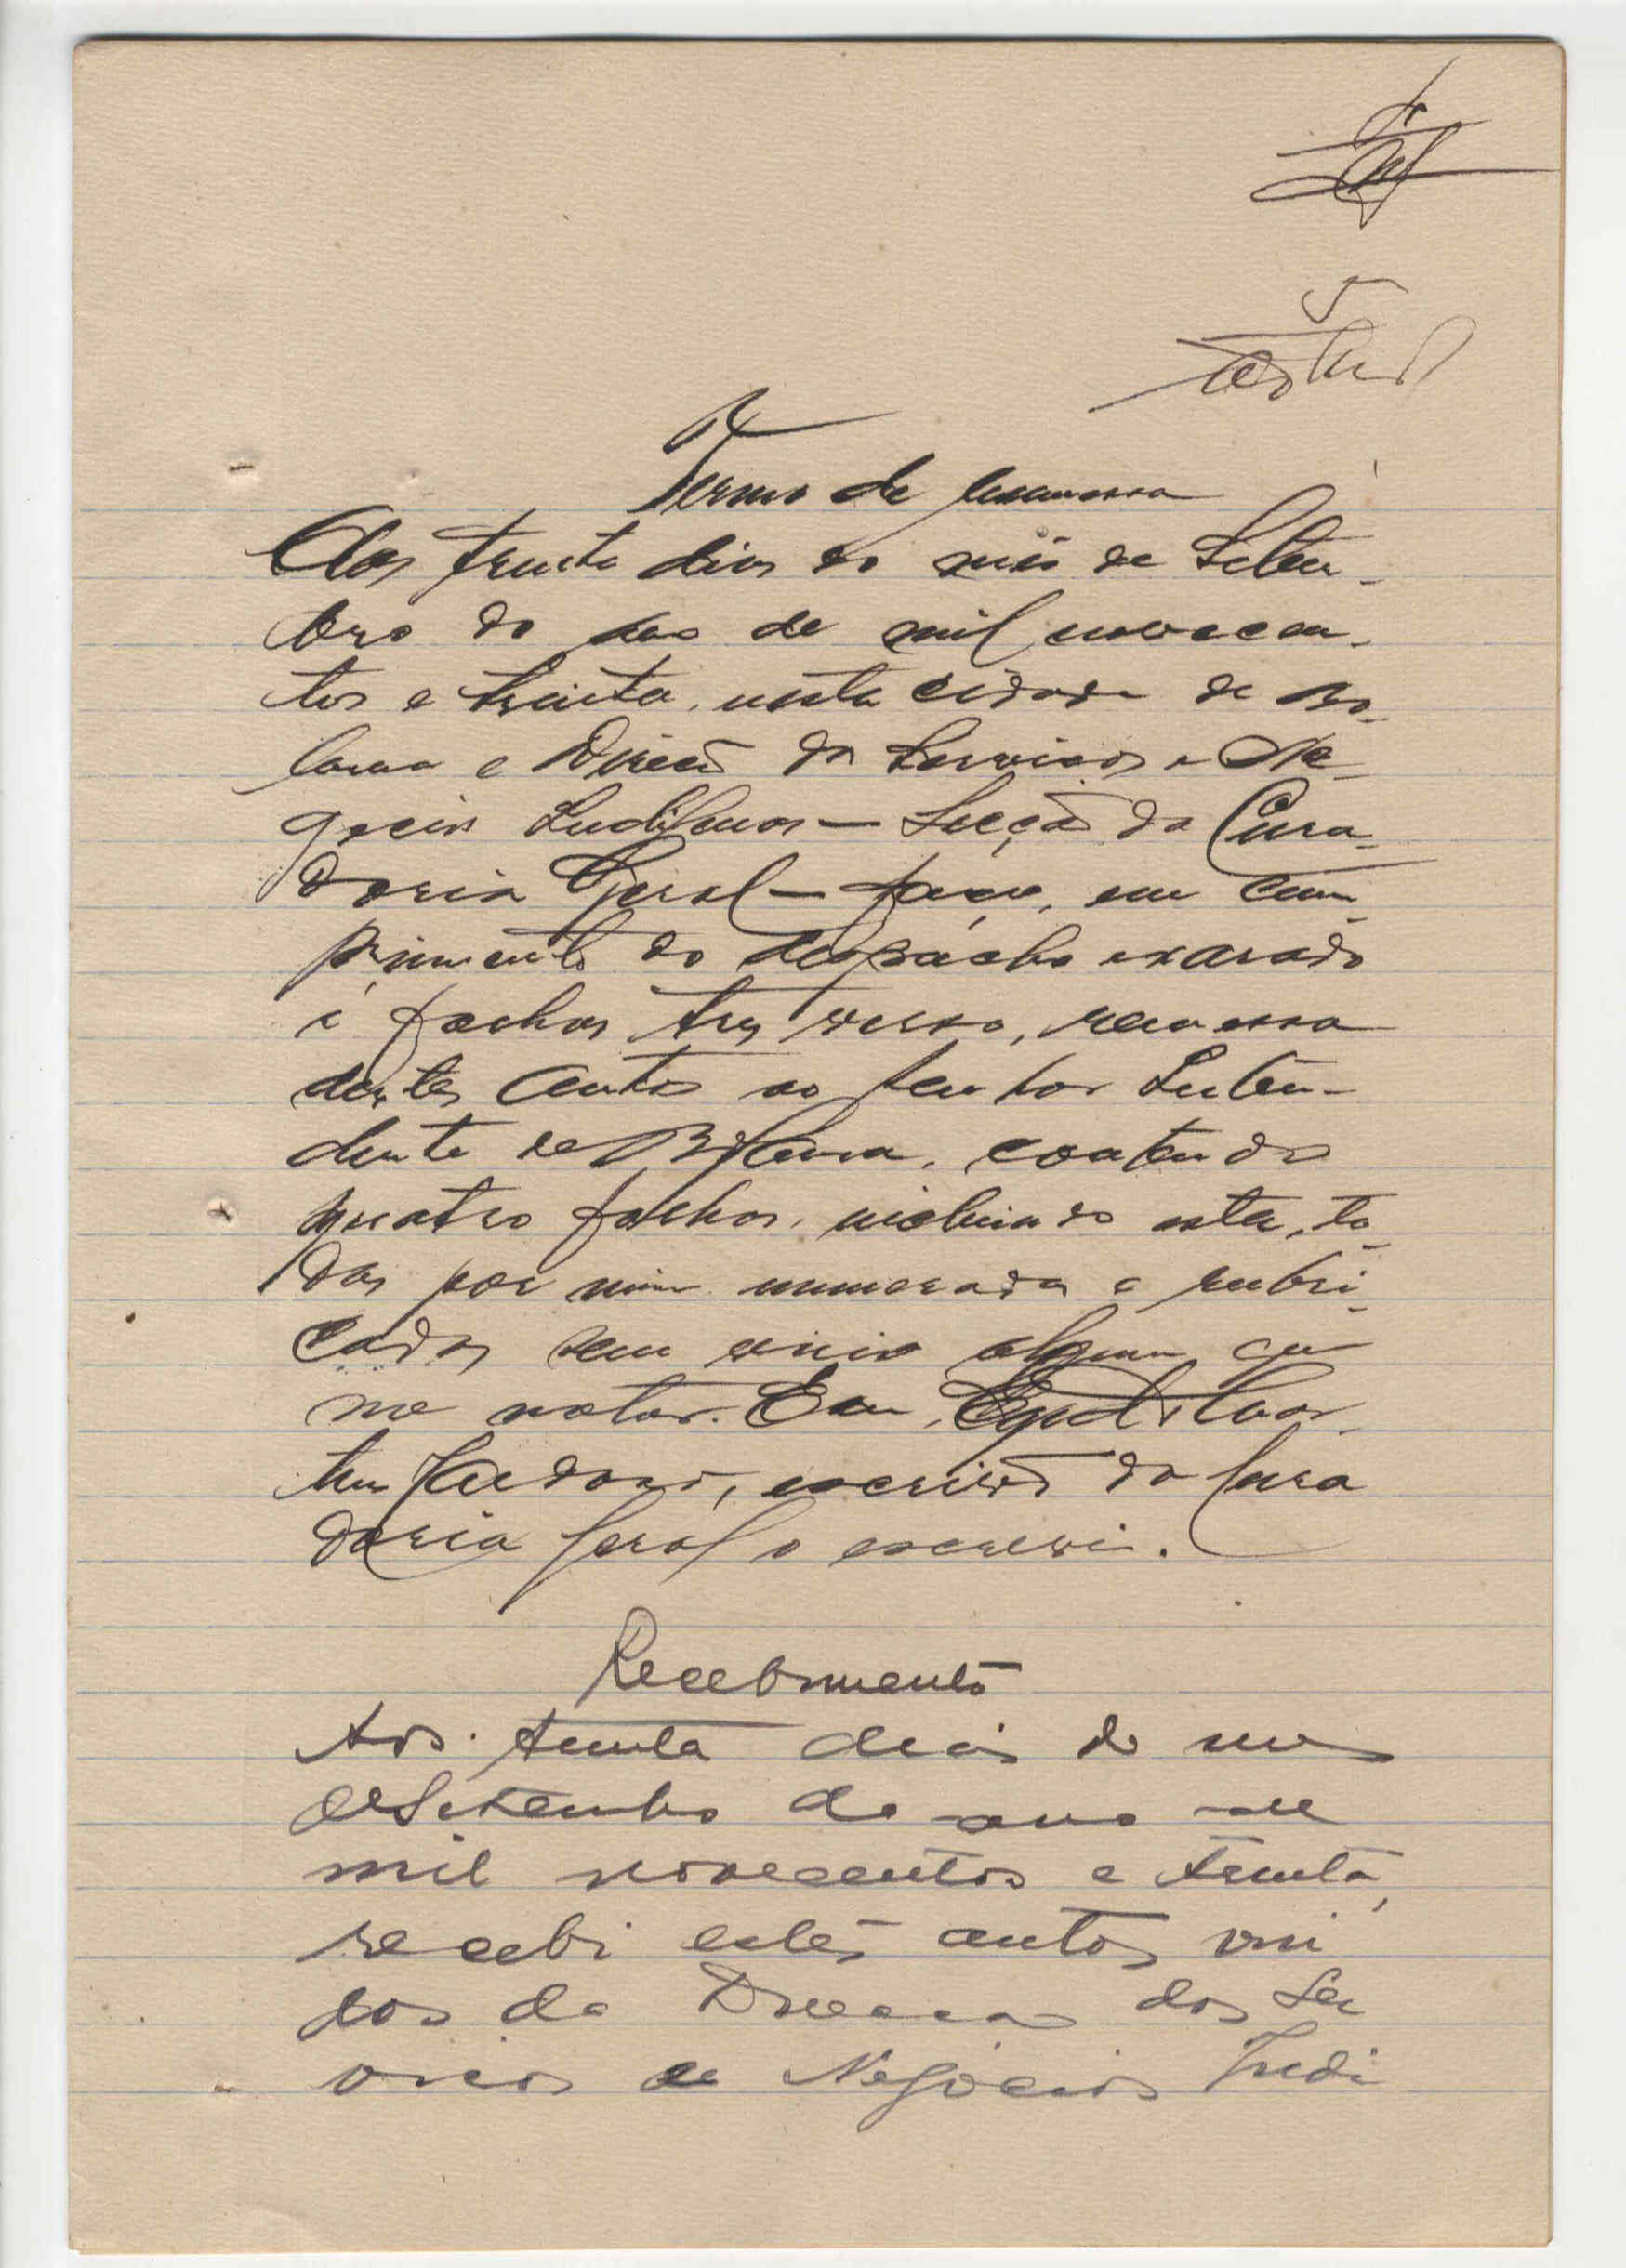 5
Termo de remessa
Aos trinta dias do mês de Setem-
bro do ano de mil novecen-
tos e trinta, nesta cidade de Bo-
lama e Direcão dos Serviços e Ne-
gocios Indigenas — Secção da Cura-
doria Geral — faço, em cum-
primento do despacho exarado
a folhas tres verso, remessa
destes autos ao senhor Inten-
dente de Bolama, contendo
quatro folhas, incluindo esta, to-
das por mim numeradas e rubri-
cadas sem vicio algum que
se notar. Eu,
Cardoso, escrivão da Cura
doria Geral o escrevi.
Recebimento
Aos trinta dias do mes
de Setembro do ano de
mil novecentos e trinta,
recebi estes autos vin
dos da Direcao dos Ser
viços de Negócios Indi